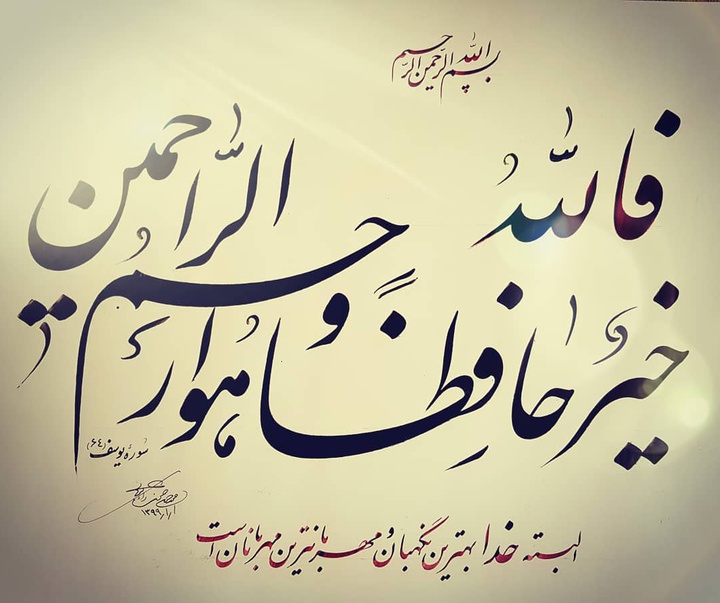 بسم الله الرحمن الرحیم
فاللّٰهُ
خیرٌ حافِظاً و هو ارحم الرّاحمین
سورهٔ یوسف (۶۴)
۱۳۹۹
البته خدا بهترین نگهبان و مهربانترین مهربانان است